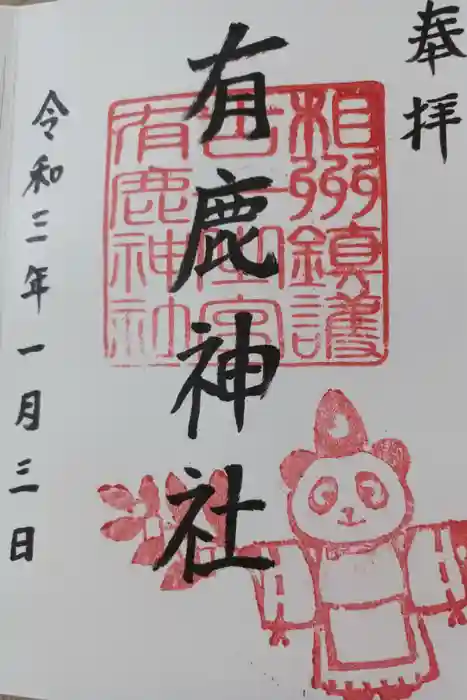 奉拝
有鹿神社
相州鎮護
有鹿神社
令和三年一月三日